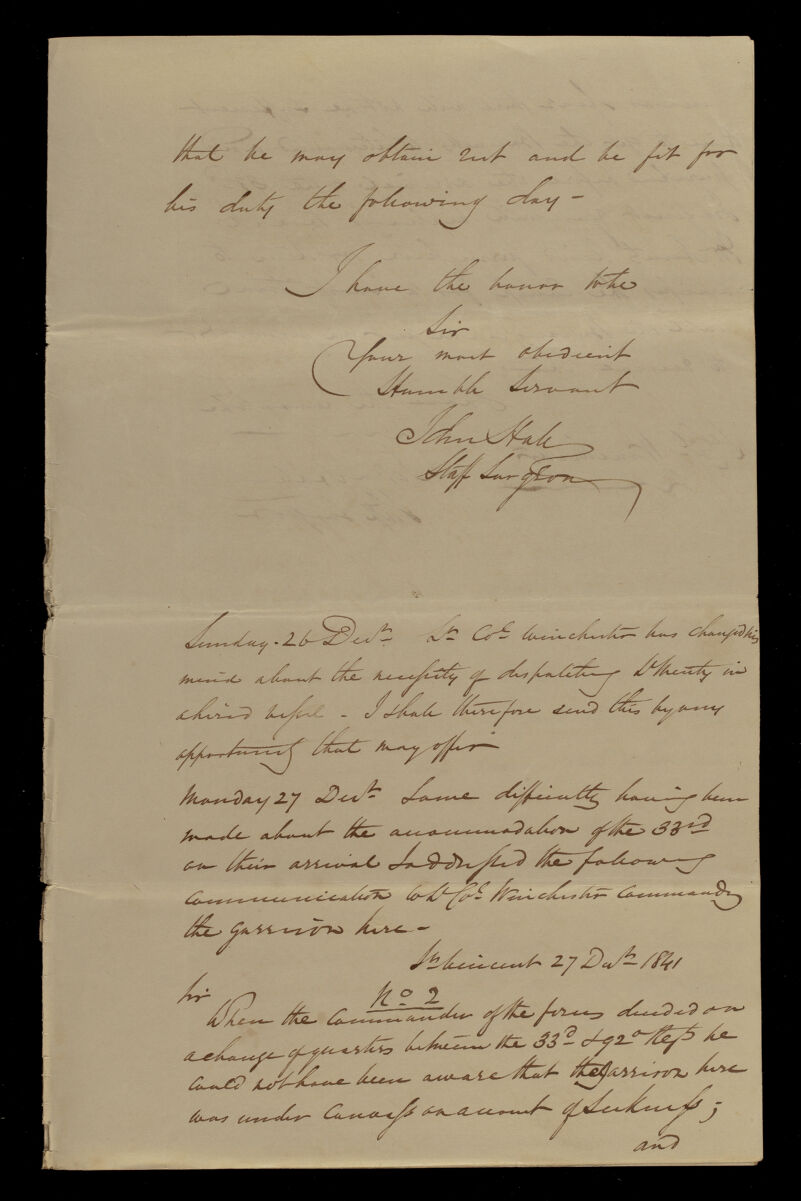 that he may obtain rest and be fit for
his duty the following day -
I have the honor to be
Sir
Your most obedient
Humble Servant
John Hall
Staff Surgeon
Sunday. 26 Decr. Lt. Col. Winchester has changed his
mind about the necessity of dispatching Dr in
a hired vessel - I shall therefore send this by any
opportunity that may offer
Monday 27 Decr. Some difficulty having been
made about the accommodation of the 33rd
on their arrival I addressed the following
communication to Lt. Col. Winchester Commandg
the garrison here -
St Vincent 27 Decr. 1841
No. 2
Sir
When the Commander of the forces decided on
a change of quarters between the 33d & 92d Regts he
could not have been aware that the Garrison here
was under Canvass on account of Sickness;
and